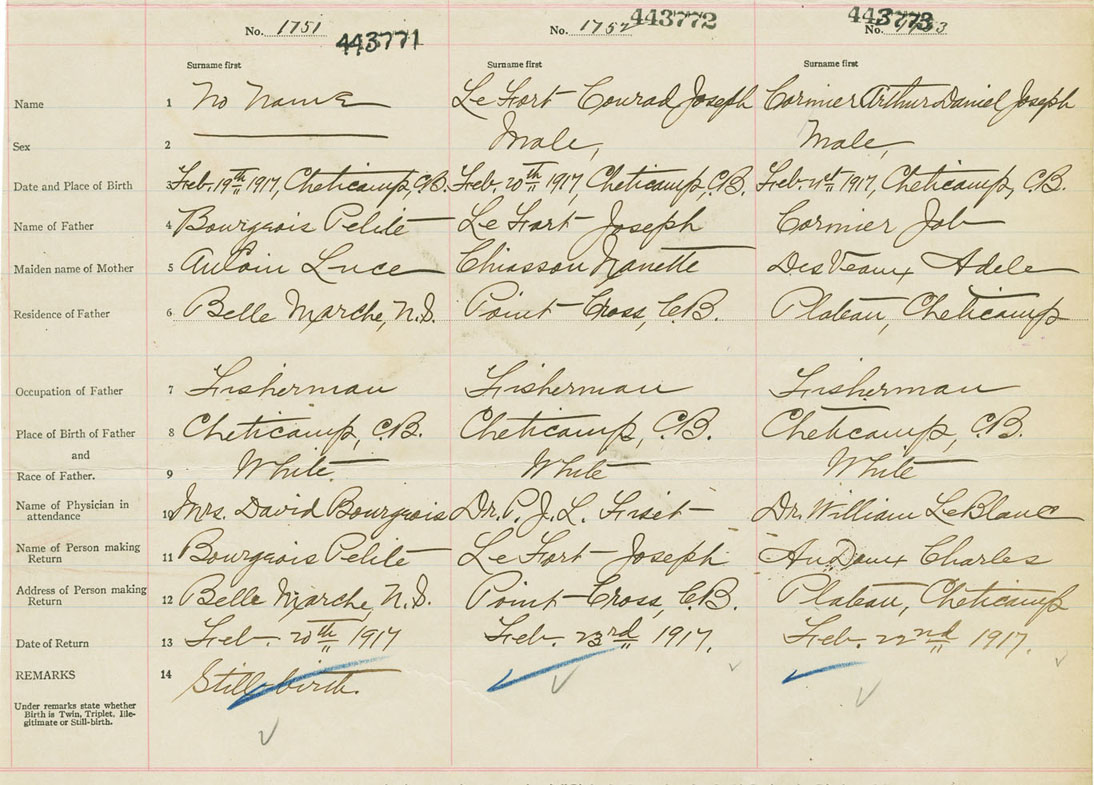 No. 1751 No. 1752 443772 443773
443771 No.
Surname first Surname first Surname first
Name 1 No Name Le Fort Conrad Joseph Cormier Arthur Daniel Joseph
Sex 2 Male, Male,
Date and Place of Birth 3 Feb. 19th 1917, Cheticamp, C.B. Feb. 20th 1917, Cheticamp, C.B. Feb. 1917, Cheticamp, C.B.
Name of Father 4 Bourgeois Pelite Le Fort Joseph Cormier Job
Maiden name of Mother 5 Aucoin Luce Chiasson Nanette DesVeaux Adele
Residence of Father 6 Belle Marche, N.S. Point Cross, C.B. Plateau, Cheticamp
Occupation of Father 7 Fisherman Fisherman Fisherman
Place of Birth of Father 8 Cheticamp, C.B. Cheticamp, C.B. Cheticamp, C.B.
and
Race of Father. 9 White White White
Name of Physician in
attendance 10 Mrs. David Bourgeois Dr. P. J. L. Fiset Dr. William LeBlanc
Name of Person making
Return 11 Bourgeois Pelite Le Fort Joseph Charles
Address of Person making
Return 12 Belle Marche, N.S. Point Cross, C.B. Plateau, Cheticamp
Date of Return 13 Feb. 20th 1917 Feb. 23rd 1917. Feb. 22nd 1917.
REMARKS 14 Still-birth.
Under remarks state whether
Birth is Twin, Triplet, Ille-
gitimate or Still-birth.